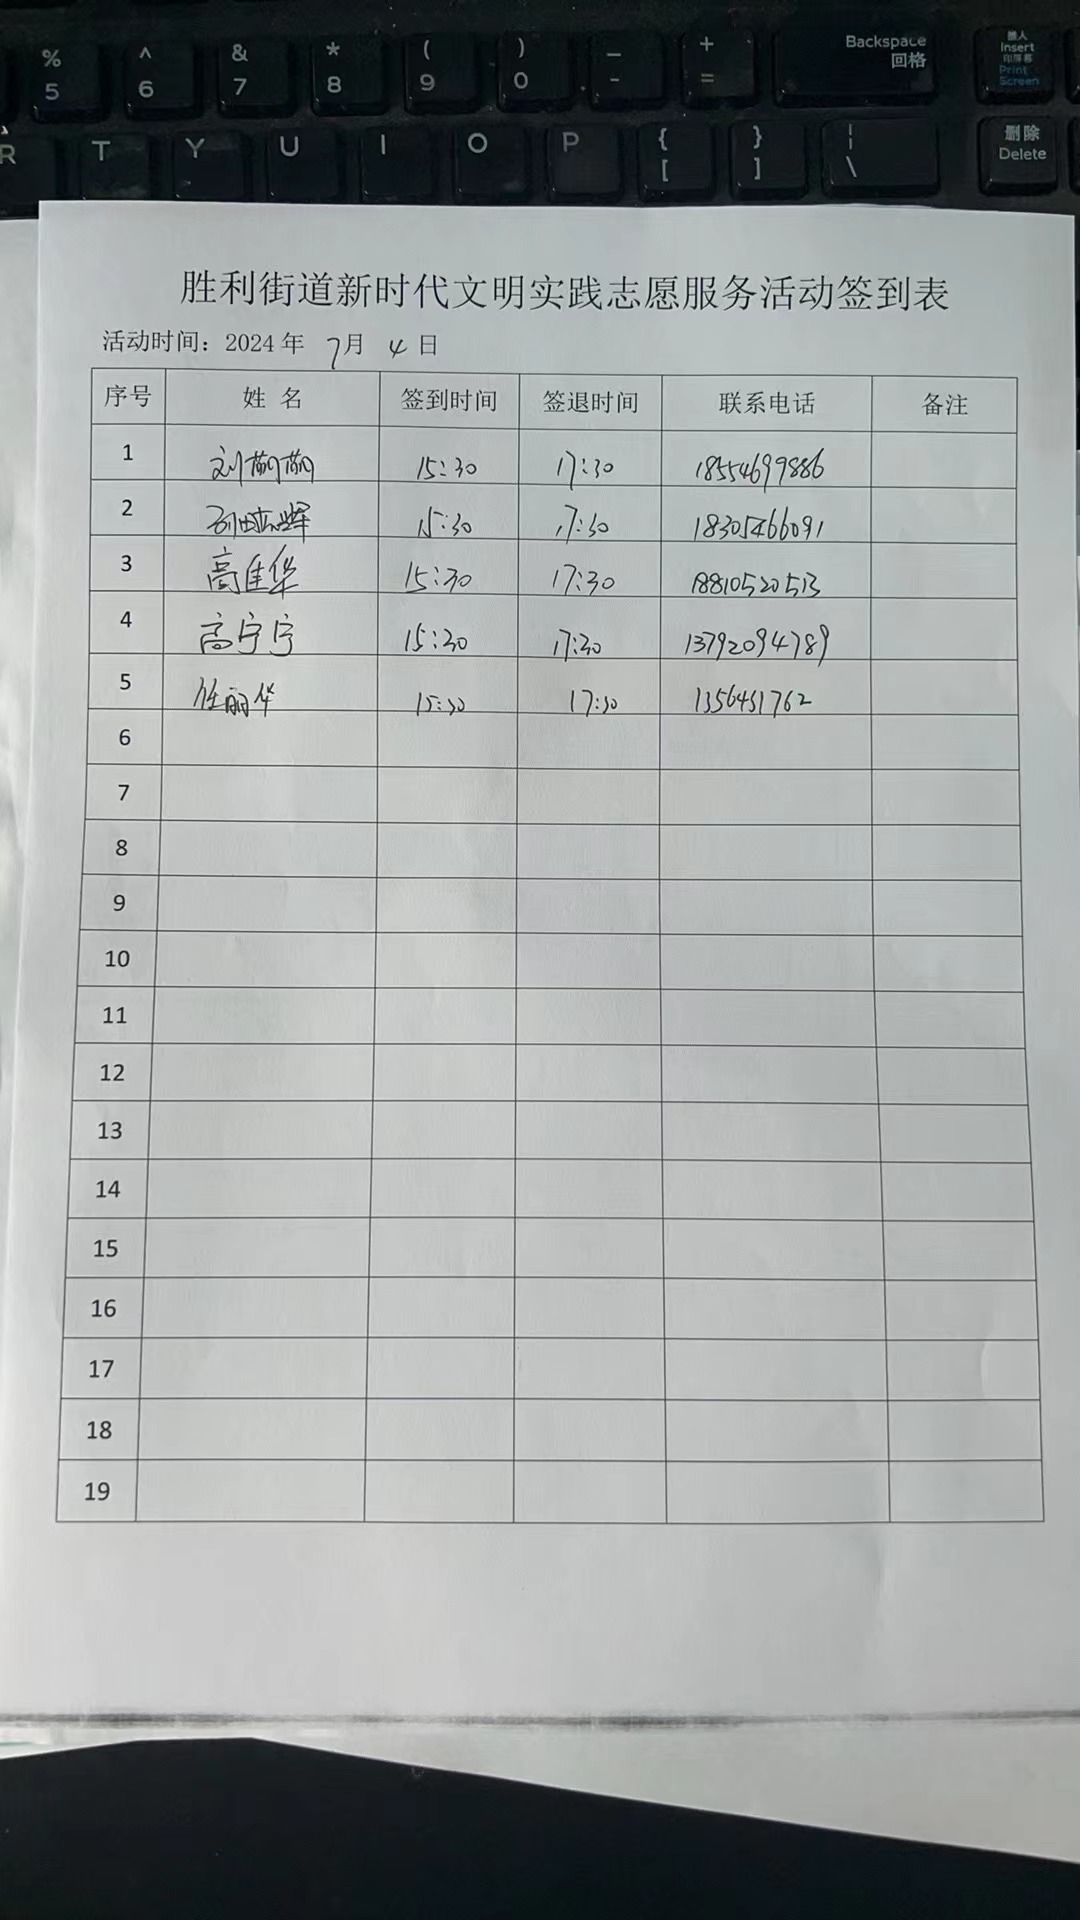 % ^ & * ( ) — + Backspace Insert
5 6 7 8 9 0 - = 回格 Print Screen
R T Y U I O P { [ } ] | \ 删除 Delete
胜利街道新时代文明实践志愿服务活动签到表
活动时间：2024 年 7月 4 日
序号 姓 名 签到时间 签退时间 联系电话 备注
1 刘萌萌 15:30 17:30 18554699886
2 15:30 17:30 18305466091
3 高佳华 15:30 17:30 18810520513
4 高宁宁 15:30 17:30 13792094789
5 任丽华 15:30 17:30 1356451762
6
7
8
9
10
11
12
13
14
15
16
17
18
19